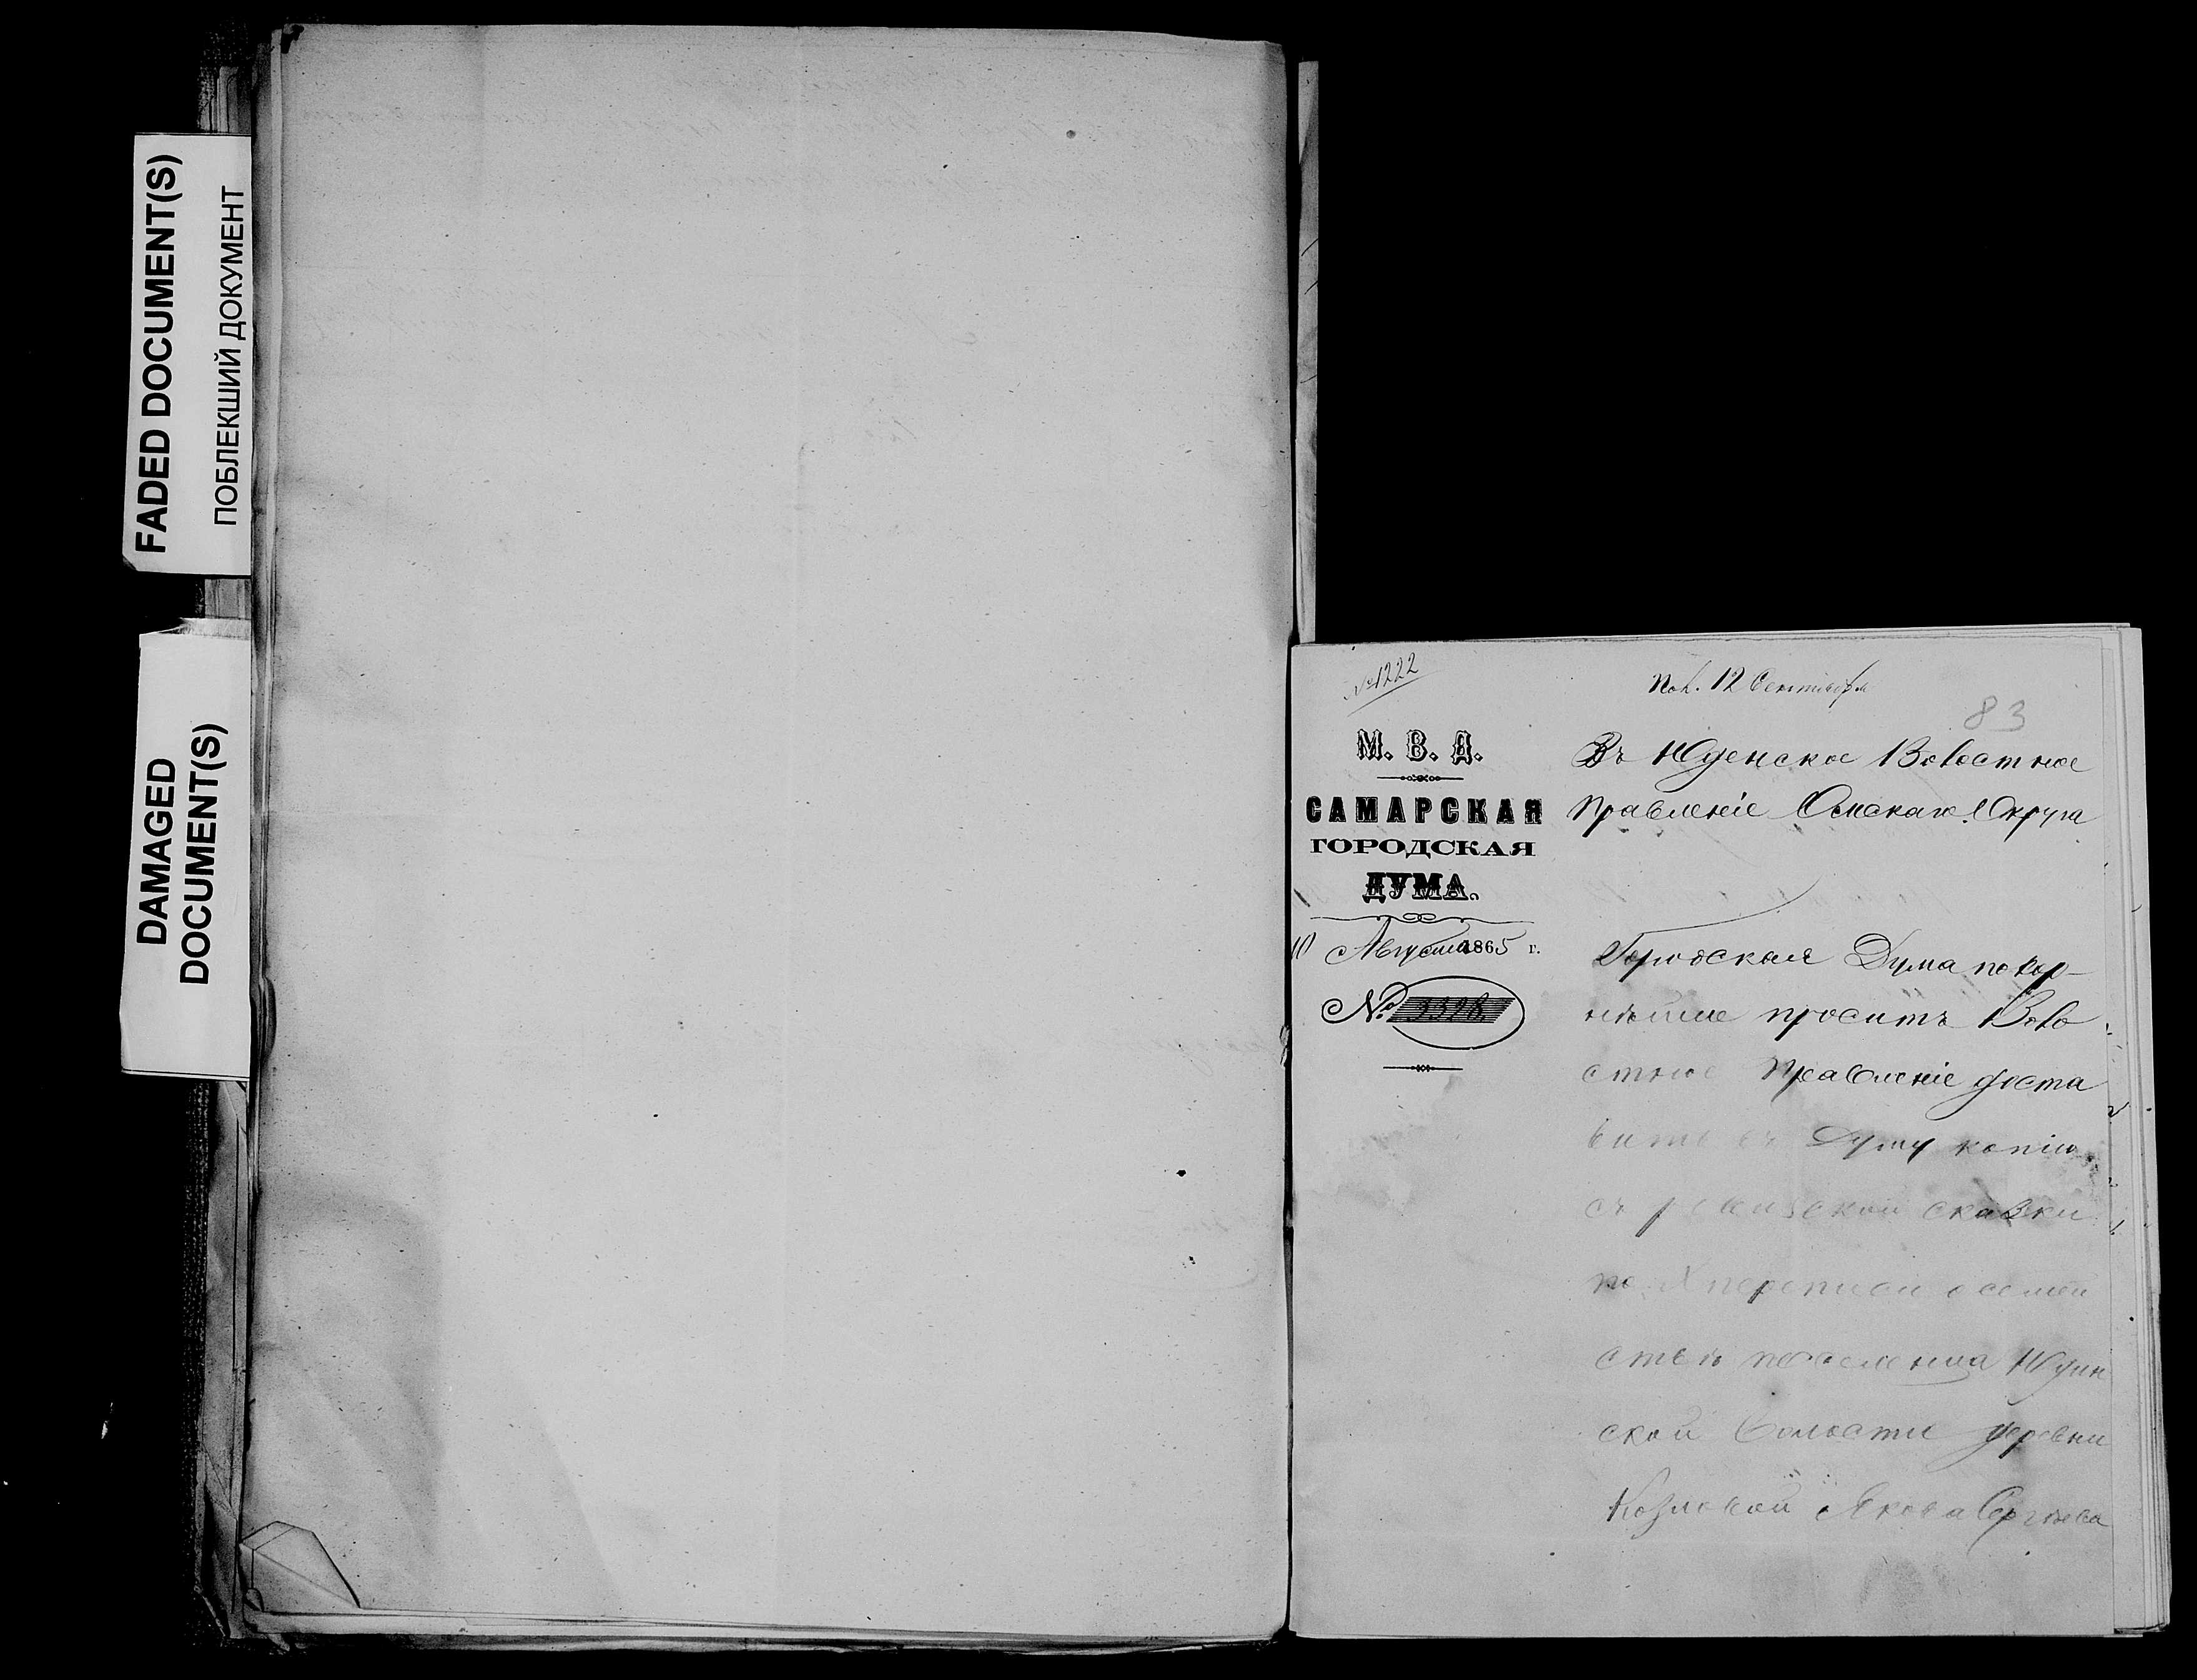 FADED DOCUMENT(S)
ПОБЛЕКШИЙ ДОКУМЕНТ
DAMAGED
DOCUMENT(S)
№1222
Пол. 12 Сентября
83
М. В. Д.
САМАРСКАЯ
ГОРОДСКАЯ
ДУМА.
10 Августа 1865 г.
№ 3328
Въ Юденское Волостное
Правленіе Омскаго Округа
Городская Дума покор-
нѣйше проситъ Воло
стное Правленіе доста
вить въ Думу копію
съ ревизской сказки
по X переписи о семей
ствѣ поселенца Юдин
ской Волости деревни
Козловой Якова Сергѣева